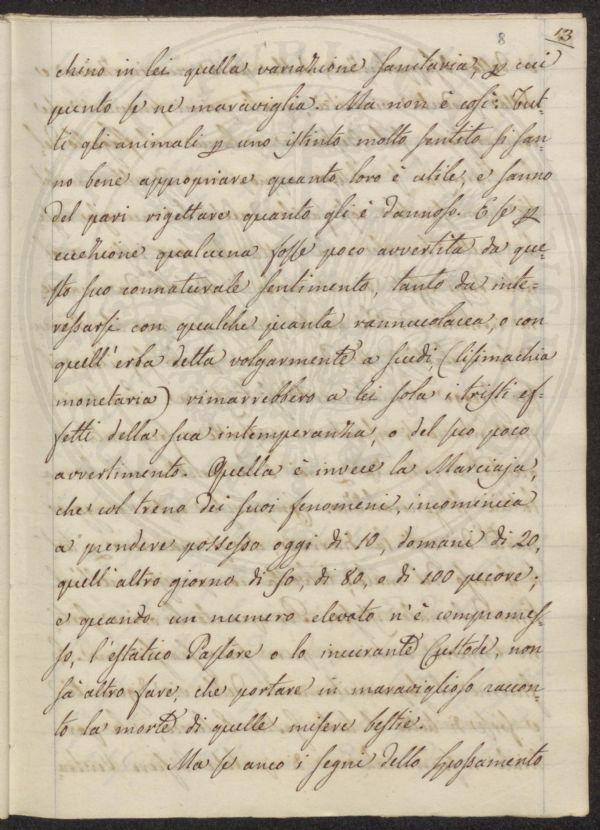 8 13
chino in lei quella variazione sanitaria, p cui
punto se ne maraviglia. Ma non è così: Tut-
ti gli animali p uno istinto molto sentito si san-
no bene appropriare quanto loro è utile, e sanno
del pari rigettare quanto gli è dannoso. E se p
eccezione qualcuna fosse poco avvertita da que-
sto suo connaturale sentimento, tanto da inte-
ressarsi con qualche pianta rannucolacea, o con
quell'erba detta volgarmente a scudi, (lisimachia
monetaria) rimarrebbero a lei sola i tristi ef-
fetti della sua intemperanza, o del suo poco
avvertimento. Quella è invece la Marciaja,
che col treno dei suoi fenomeni, incomincia
a prendere possesso oggi di 10, domani di 20,
quell'altro giorno di 50, di 80, o di 100 pecore;
e quando un numero elevato n'è compromes-
so, l'estatico Pastore o lo incurante Custode, non
sà altro fare, che portare in maraviglioso raccon-
to la morte di quelle misere bestie.
Ma se anco i segni dello spossamento